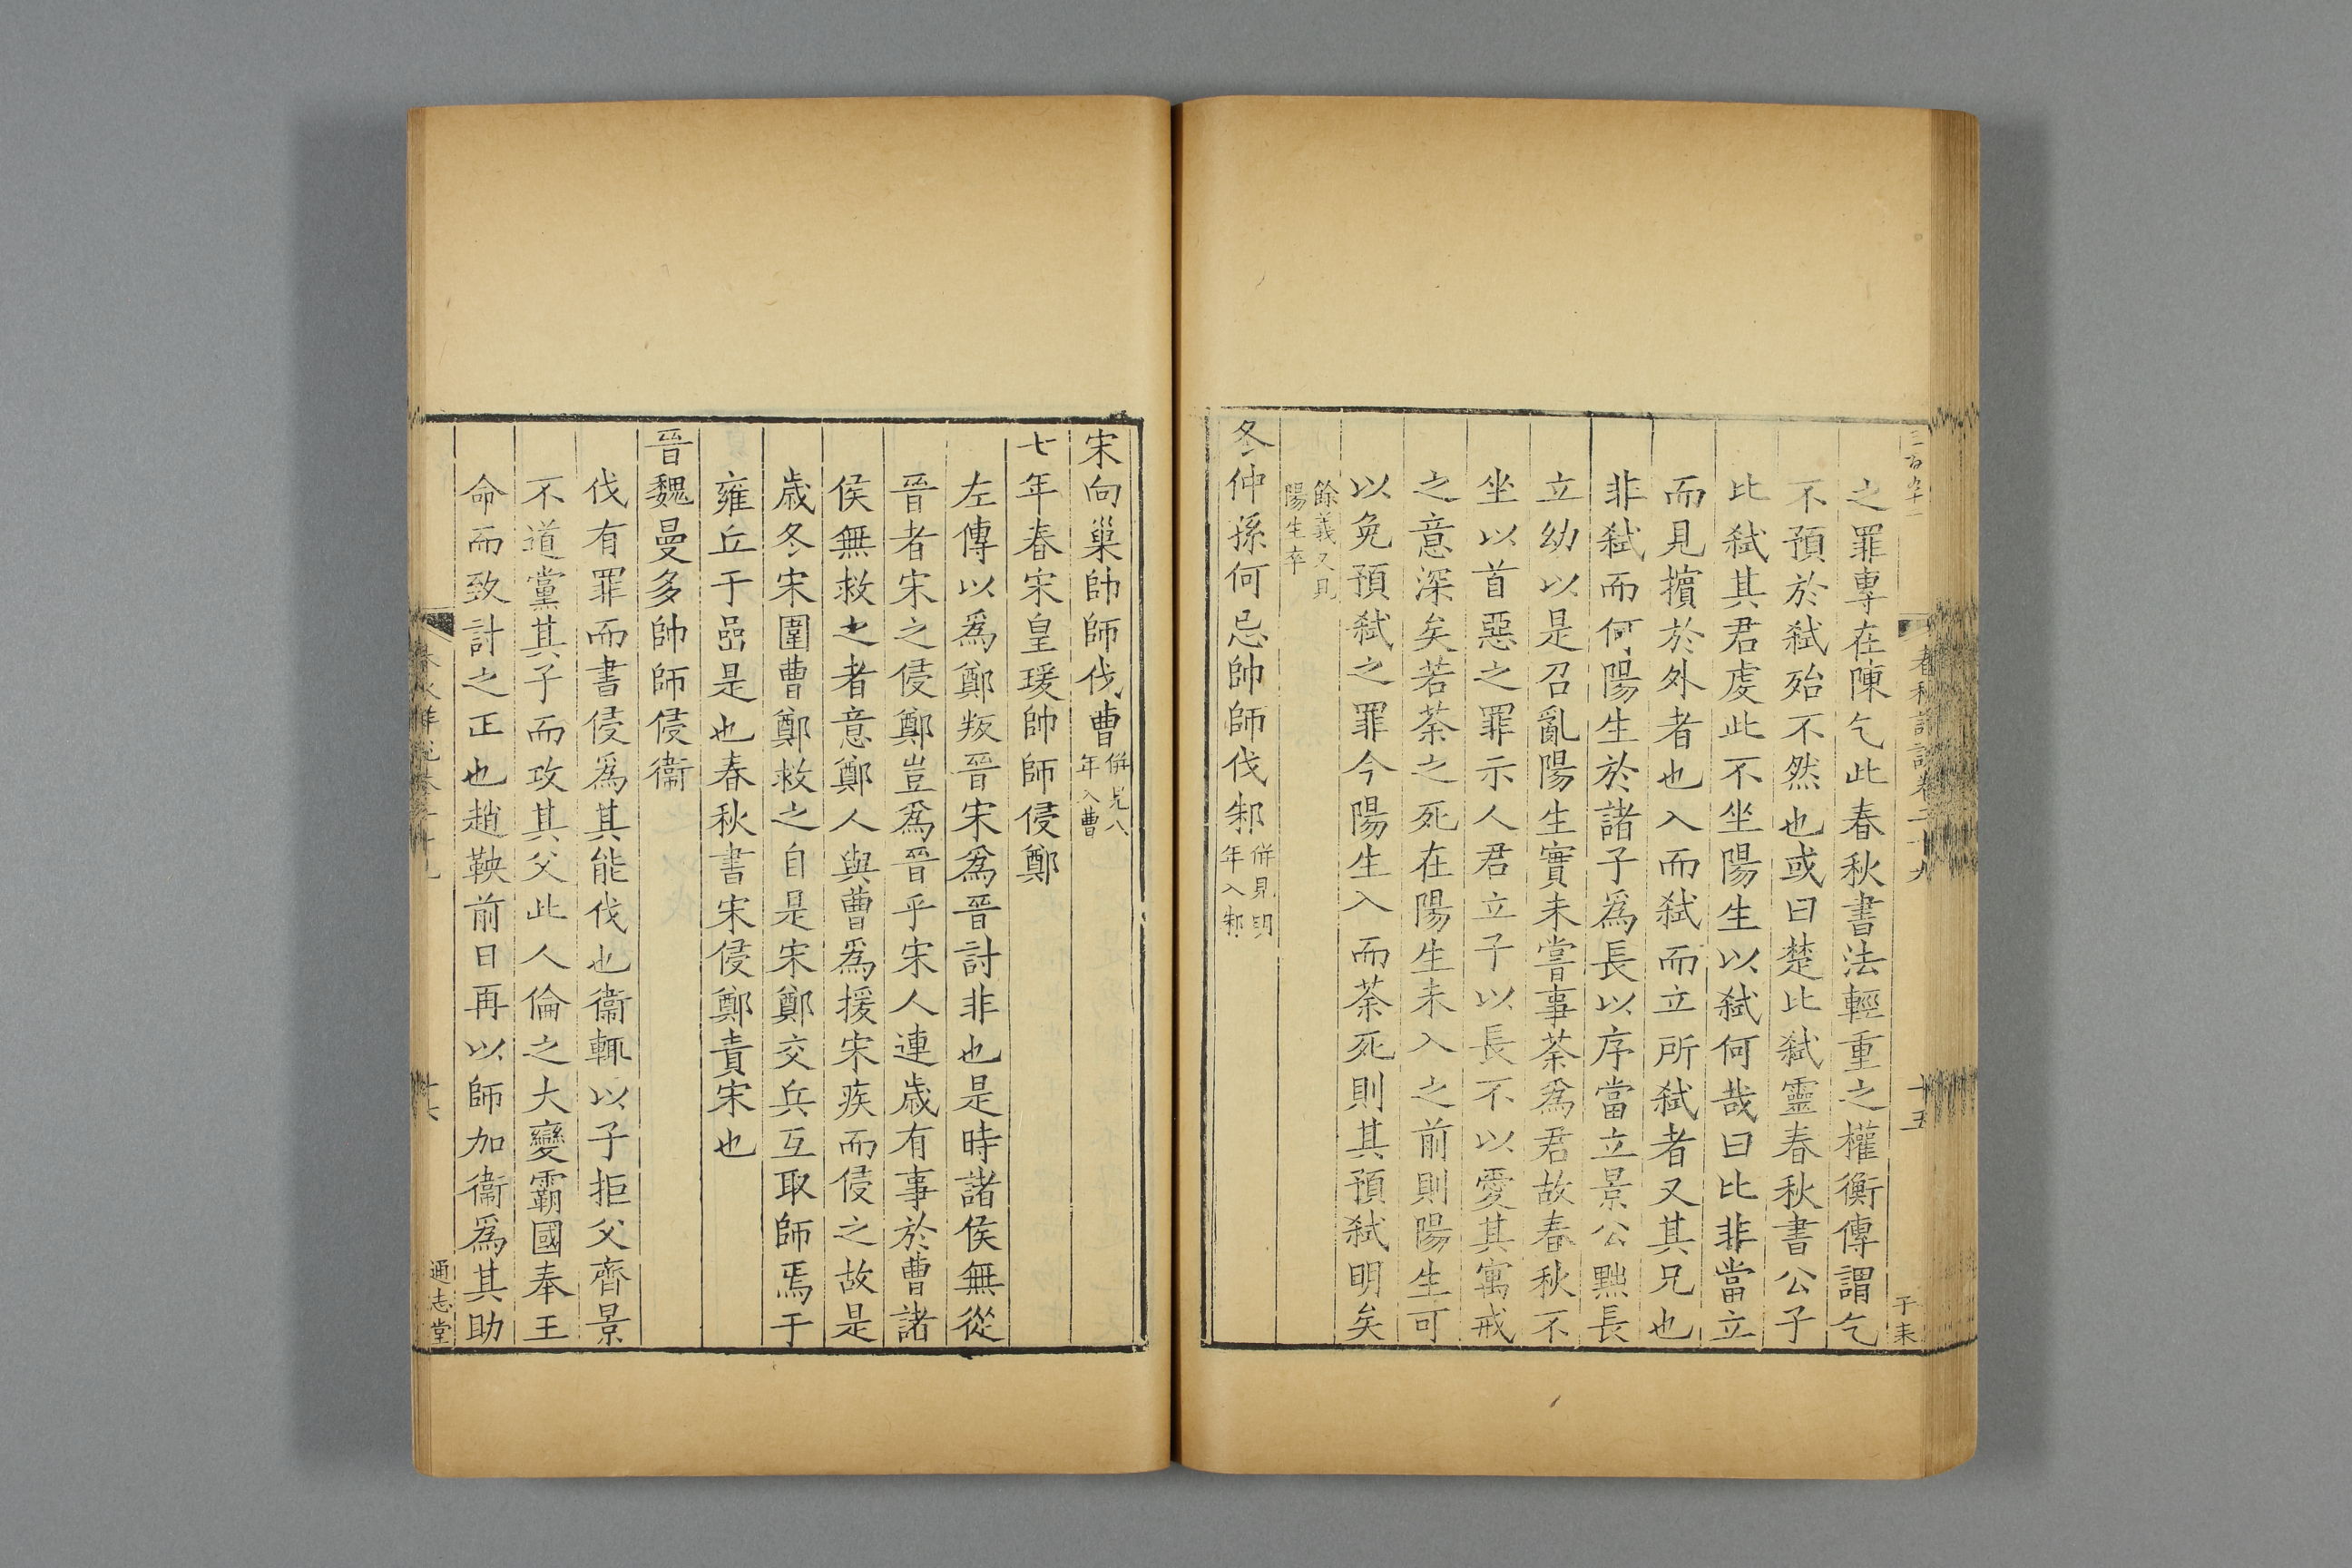 之罪專在陳乞此春秋書法輕重之權衡傳謂乞
不預於弑殆不然也或曰楚比弑靈春秋書公子
比弑其君虔此不坐陽生以弑何哉曰比非當立
而見擯於外者也入而弑而立所弑者又其兄也
非弑而何陽生於諸子爲長以序當立景公黜長
立幼以是召亂陽生實未嘗事荼爲君故春秋不
坐以首惡之罪示人君立子以長不以愛其寓戒
之意深矣若荼之死在陽生未入之前則陽生可
以免預弑之罪今陽生入而荼死則其預弑明矣
餘義又見
陽生卒
冬仲孫何忌帥師伐邾併見明
年入邾
宋向巢帥師伐曹併見八
年入曹
七年春宋皇瑗帥師侵鄭
左傳以爲鄭叛晉宋爲晉討非也是時諸侯無從
晉者宋之侵鄭豈爲晉乎宋人連歲有事於曹諸
侯無救之者意鄭人與曹爲援宋疾而侵之故是
歲冬宋圍曹鄭救之自是宋鄭交兵互取師焉于
雍丘于嵒是也春秋書宋侵鄭責宋也
晉魏曼多帥師侵衞
伐有罪而書侵爲其能伐也衞輒以子拒父齊景
不道黨其子而攻其父此人倫之大變霸國奉王
命而致討之正也趙鞅前日再以師加衞爲其助
十六
通志堂